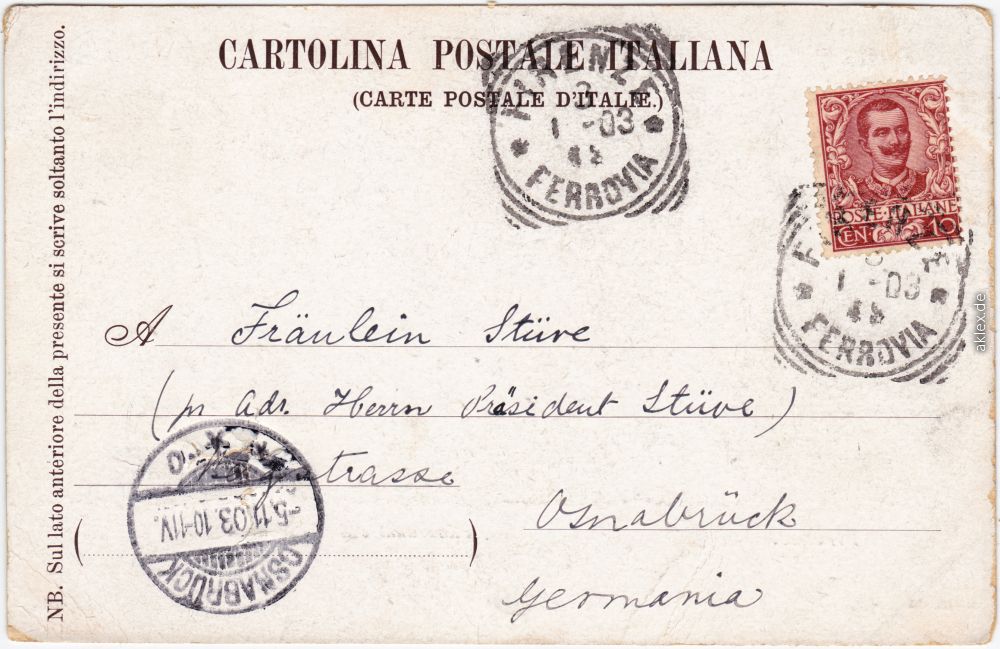 CARTOLINA POSTALE ITALIANA
(CARTE POSTALE D'ITALIE.)
FIRENZE
1 -03
FERROVIA
POSTE·ITALIANE
CEN. 10
FIRENZE
1 -03
FERROVIA
A Fräulein Stüve
(pr Adr. Herrn Präsident Stüve)
strasse
Osnabrück
Germania
( )
5.11.03.10-11V.
OSNABRÜCK
NB. Sul lato anteriore della presente si scrive soltanto l'indirizzo.
aklex.de